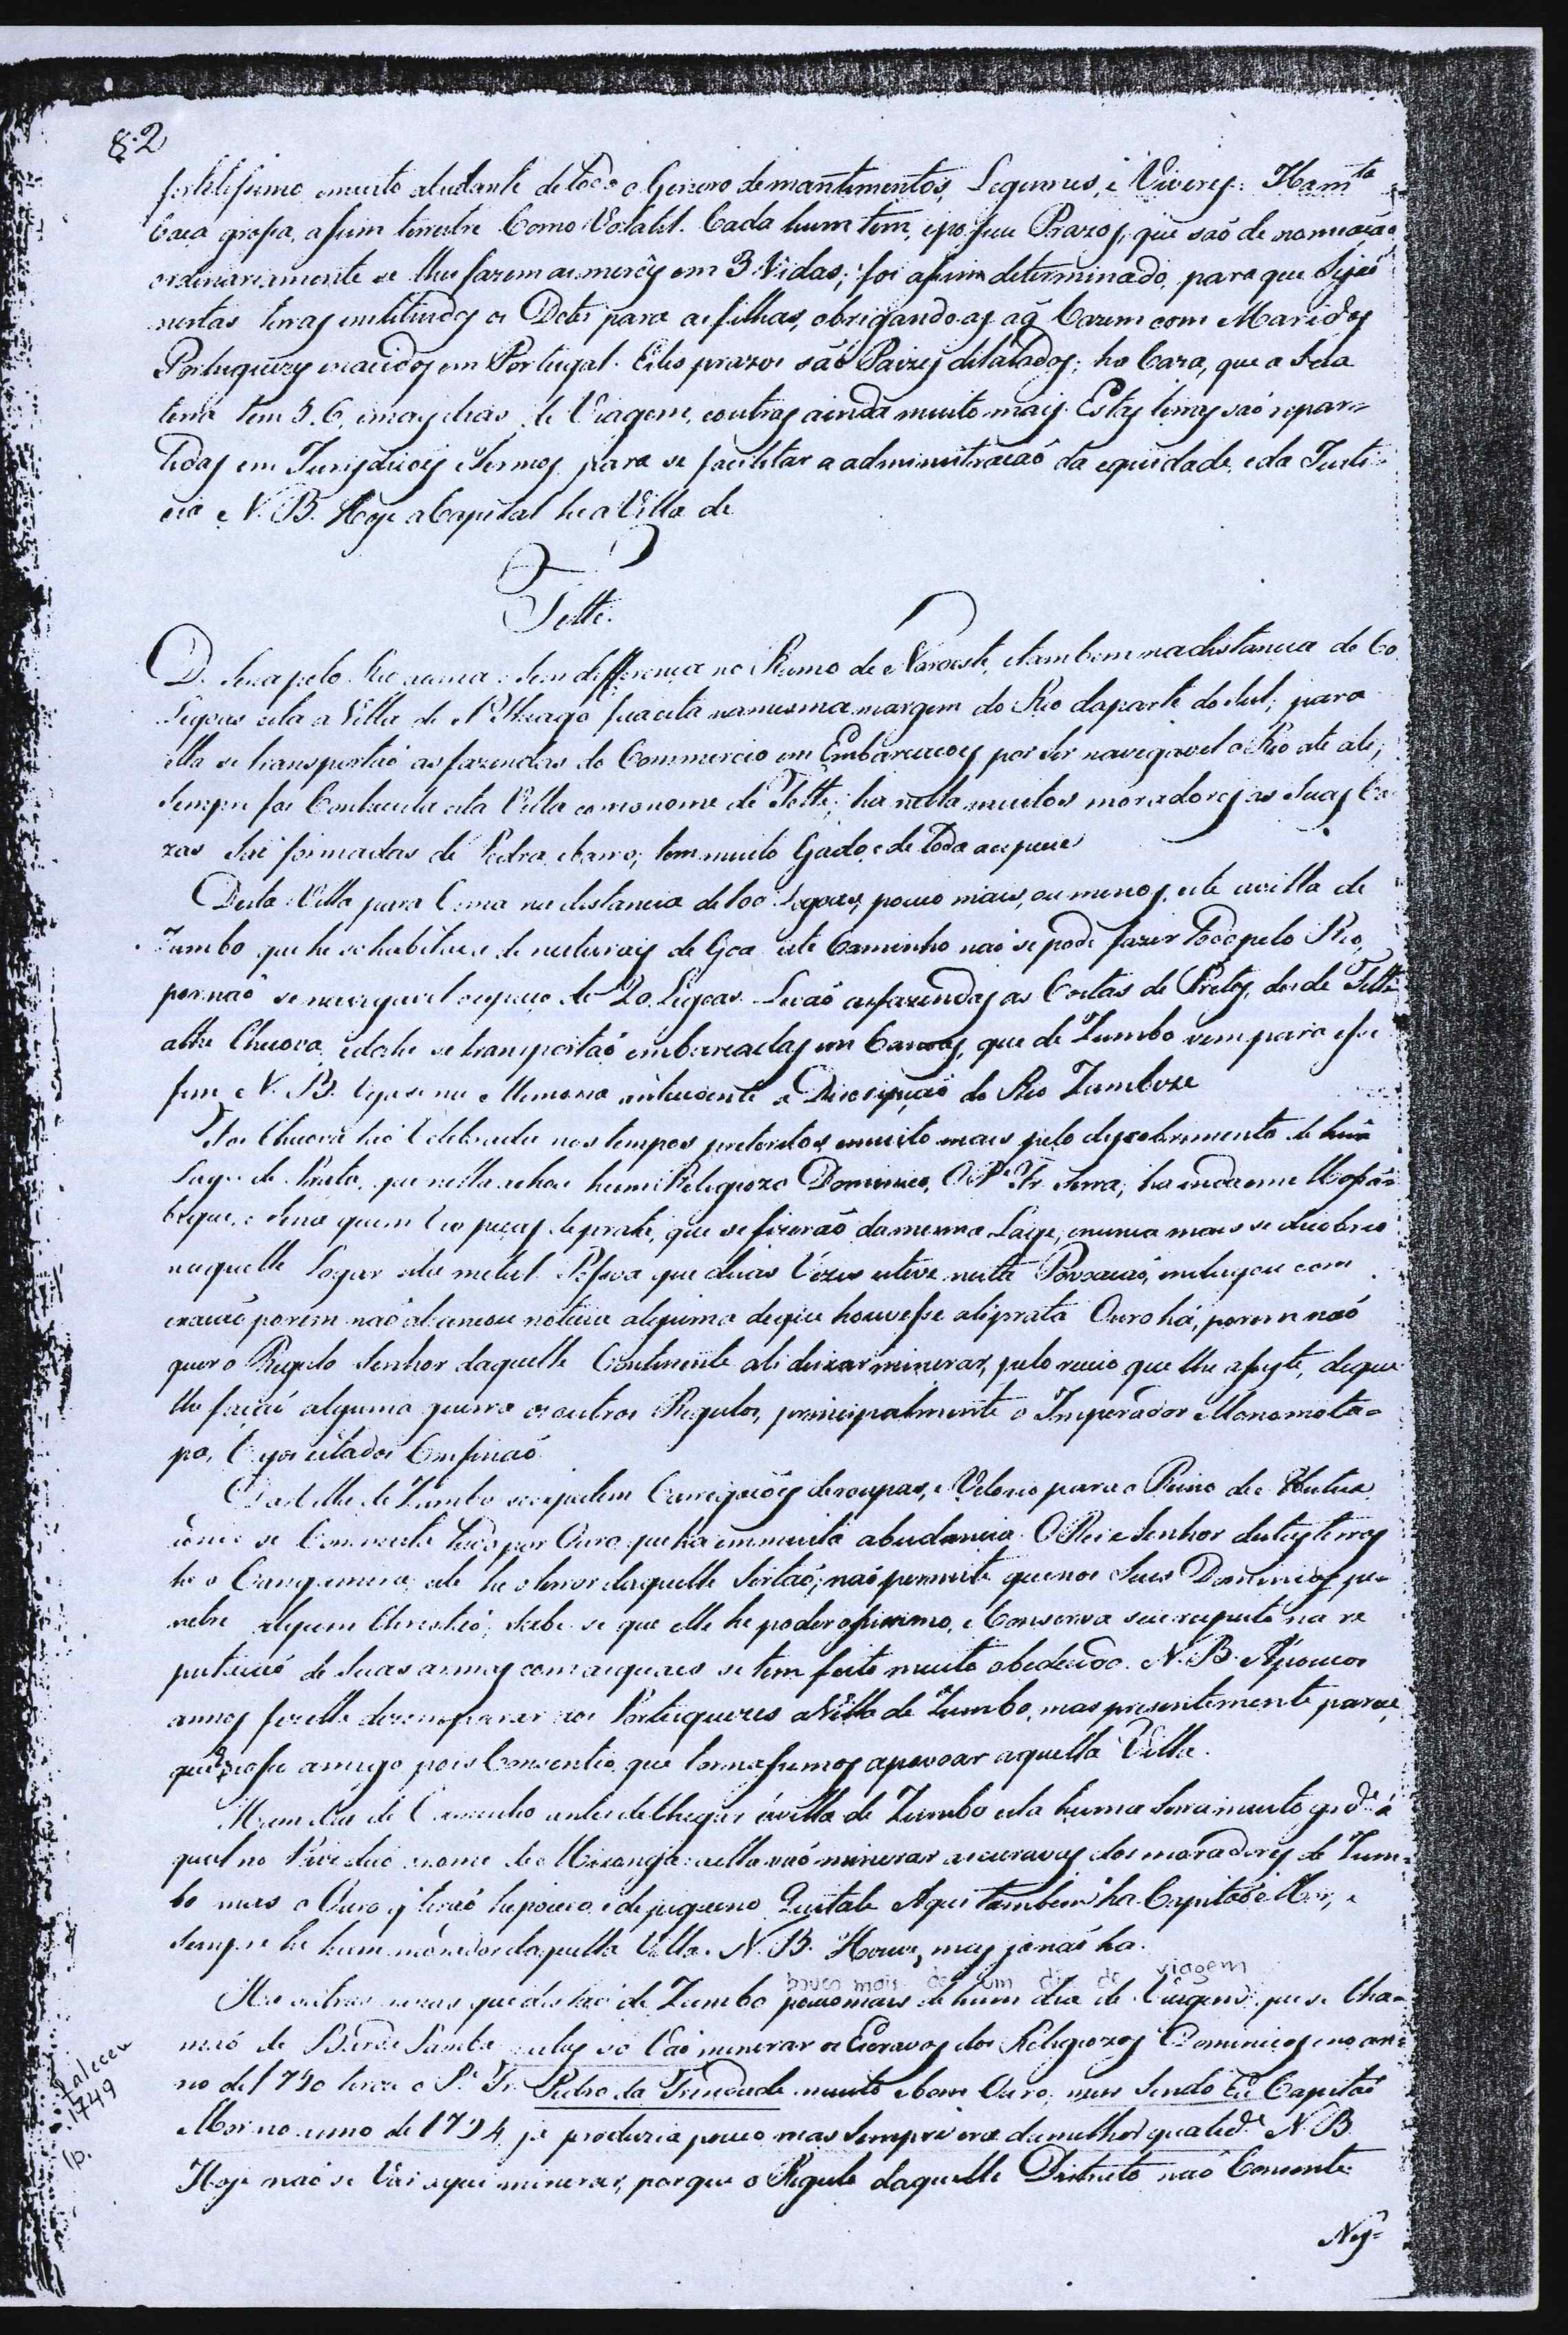 82
fertilissimo e muito abudante de todo o Genero de mantimentos, Legumes, e Viveres: Ha m.ta
Caça grossa, assim terrestre Como Volatil. Cada hum tem, e possue Prazos, que saõ de nomeaçaõ
ordinariamente se lhes fazem as mercês em 3 Vidas; foi assim determinado, para que Sejaõ
nestas terras instituidos os Dotes para as filhas, obrigando as a q̃ Cazem com Maridos
Portuguezes nacidos em Portugal. Estes prazos saõ Paizes dilatados; ha Caza, que a Sua
terra tem 5. 6, e mays dias de Viagem, e outras ainda muito mais. Estas terras saõ repar=
tidas em Jurisdicoẽs e Termos para se facilitar a administracaõ da equidade, e da Justi=
cia N. B. Hoje a Capital he a Villa de
Tette.
De Sena pelo Rio acima sem differença no Rumo de Noroeste, e tambem na distancia de 60
Legoas esta a Villa de S. Thiago faceita na mesma margem do Rio da parte do Sul; para
ella se transportaõ as fazendas do Commercio em Embarcacoẽs por ser navegavel o Rio ate ali;
Sempre foi Conhecida esta Villa com o nome de Tette; ha nella muitos moradores as Suas Ca=
zas Saõ formadas de Pedra e barro; tem muito Gado e de toda a especie
Desta Villa para Cima na distancia de 100 Legoas, pouco mais, ou menos, esta a villa de
Zumbo que he so habitada de naturais de Goa este Caminho naõ se pode fazer todo pelo Rio,
por naõ se navegavel o espaço de 20 Legoas. Levaõ as fazendas as Costas de Pretos, desde Tette
athe Chicova, e dahi se transportaõ embarcadas em Canoas, que de Zumbo vem para esse
fim N. B. Veja se na Memoria antecedente a Discripçaõ do Rio Zambeze
Foi Chicova taõ Celebrada nos tempos preteritos e muito mais pelo descobrimento de huã
Lage de Prata, que nella achou hum Religiozo Dominico, O P.e Fr. Serra; ha inda em Mossã=
bique, e Sena quem Vio peças de prata, que se fizeraõ da mesma Lage, e nunca mais se discobrio
naquelle Lugar este metal. Pessoa que duas Vezes esteve nesta Povoacaõ, indagou com
exacaõ porem naõ alcançou noticia alguma de que houvesse ali prata Ouro há, porem naõ
quer o Regulo Senhor daquelle Continente ali deixar minerar, pelo receio que lhe assiste, de que
lhe façaõ alguma guerra os outros Regulos, principalmente o Imperador Monomota=
pa, Cujos estados Confinaõ
Da Villa de Zumbo se expedem Carregaçoẽs de roupas, e Velorio para o Reino de Abutua
donde se Comuta tudo por Ouro que ha em muita abudancia. O Rei e Senhor destas terras
he o Cangamira; este he o terror daquelle Sertaõ; naõ permite que nos Seus Dominios pe=
netre algum Christaõ; Sabe se que elle he poderosissimo, e Conserva seu respeito na re
putacaõ de Suas armas com as quaes se tem feito muito obedecido. N. B. A poucos
annos fez elle dezemparar aos Portuguezes a Villa de Zumbo, mas presentemente parece
que he nosso amigo pois Consentio, que tornassemos a povoar aquella Villa.
Hum dia de Caminho antes de Chegar á villa de Zumbo esta huma Serra muito gr.de á
qual no Rio daõ o nome de Mixonga: nella vaõ minerar os escravos dos moradores de Zum=
bo mas o Ouro q̃ tiraõ he pouco, e de pequeno Quilate Aqui tambem ha Capitaõ Mor, e
sempre he hum morador daquella Villa. N. B. Houve, mas ja naõ ha.
pouco mais de um dia de viagem
Ha outras serras que distaõ de Zumbo pouco mais de hum dia de Viagem que se Cha=
maõ de Samba ellas so Vaõ minerar os Escravos dos Religiozos Dominicos, e no an=
no de 1740 tirou o P.e Fr. Pedro da Trindade muito e bom Ouro; mas Sendo Eu Capitaõ
Mor no anno de 1754 ja produzia pouco mas Sempre era da melhor qualid.e N. B.
Hoje naõ se Vai aqui minerar, porque o Regulo daquelle Districto naõ Consente
Falleceu
1749
Ney=